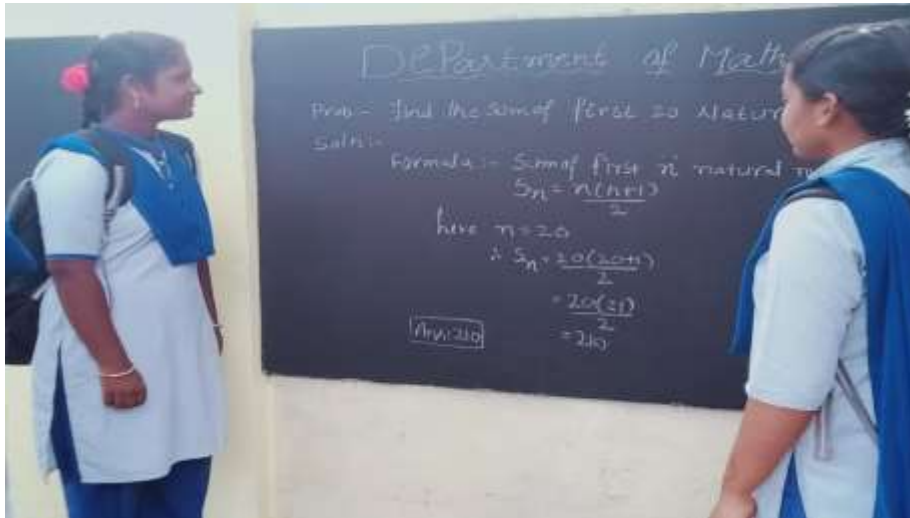 Department of Math
Prob:- Find the sum of first 20 Natur
Soln:-
Formula:- Sum of first 'n' natural n
Sn = n(n+1)/2
here n=20
∴ Sn = 20(20+1)/2
= 20(21)/2
= 210
Ans: 210